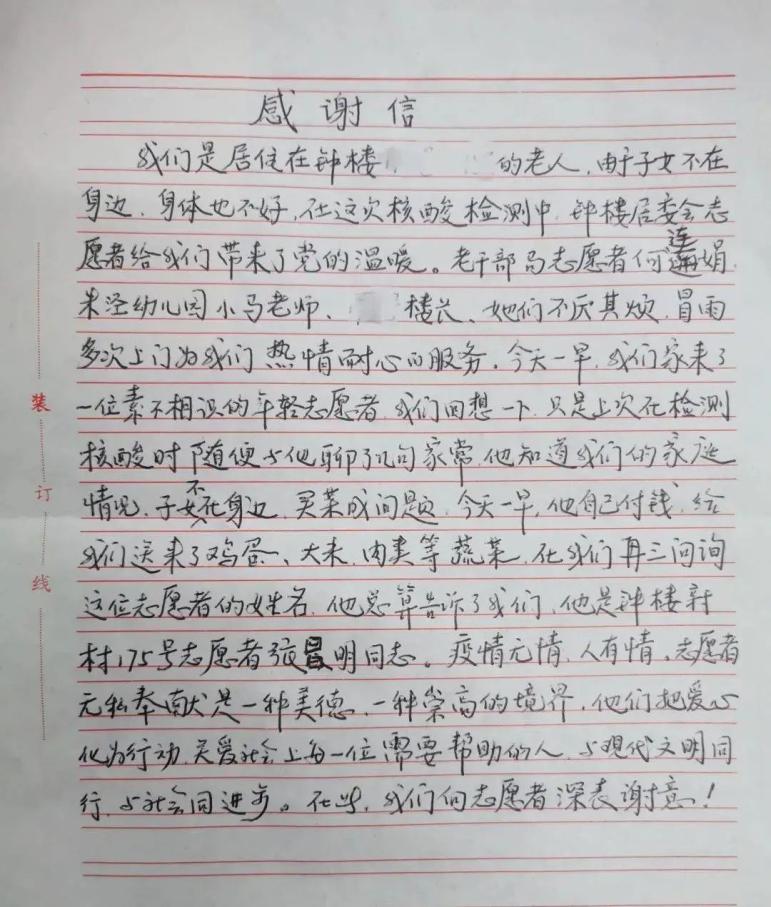 感谢信
我们是居住在钟楼 的老人，由于子女不在
身边、身体也不好，在这次核酸检测中，钟楼居委会志
愿者给我们带来了党的温暖。老干部局志愿者何连娟，
朱泾幼儿园小马老师、 楼长、她们不厌其烦，冒雨
多次上门为我们热情耐心的服务。今天一早，我们家来了
一位素不相识的年轻志愿者，我们回想一下，只是上次在检测
核酸时随便与他聊了几句家常，他知道我们的家庭
情况，子女不在身边，买菜成问题，今天一早，他自己付钱，给
我们送来了鸡蛋、大米、肉类等蔬菜，在我们再三问询
这位志愿者的姓名，他总算告诉了我们，他是钟楼新
村175号志愿者张昌明同志。疫情无情，人有情。志愿者
无私奉献是一种美德，一种崇高的境界，他们把爱心
化为行动，关爱社会上每一位需要帮助的人，与现代文明同
行，与社会同进步。在此，我们向志愿者深表谢意！
装
订
线